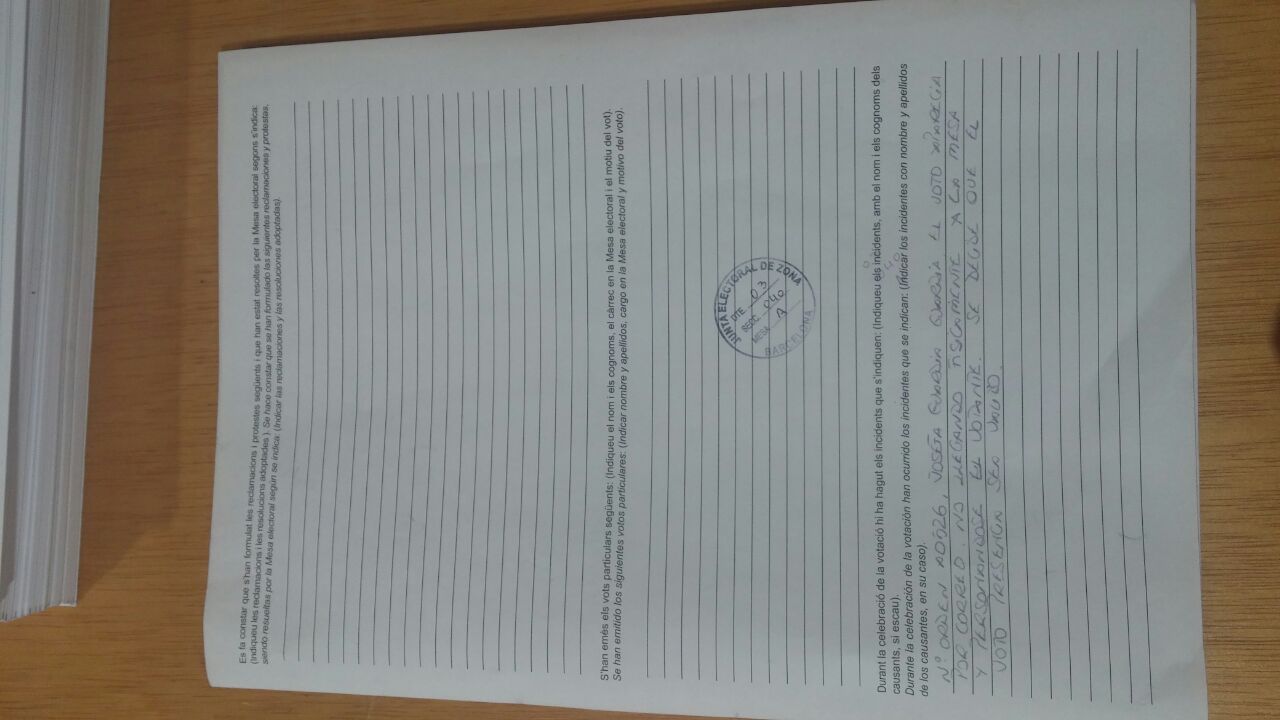 Es fa constar que s'han formulat les reclamacions i protestes següents i que han estat resoltes per la Mesa electoral segons s'indica:
(Indiqueu les reclamacions i les resolucions adoptades ). Se hace constar que se han formulado las siguientes reclamaciones y protestas,
siendo resueltas por la Mesa electoral según se indica: (Indicar las reclamaciones y las resoluciones adoptadas).
S'han emès els vots particulars següents: (Indiqueu el nom i els cognoms, el càrrec en la Mesa electoral i el motiu del vot).
Se han emitido los siguientes votos particulares: (Indicar nombre y apellidos, cargo en la Mesa electoral y motivo del voto).
JUNTA ELECTORAL DE ZONA
DTE 03
SECC 040
MESA
BARCELONA
Durant la celebració de la votació hi ha hagut els incidents que s'indiquen: (Indiqueu els incidents, amb el nom i els cognoms dels
causants, si escau).
Durante la celebración de la votación han ocurrido los incidentes que se indican: (Indicar los incidentes con nombre y apellidos
de los causantes, en su caso).
Nº ORDEN A0526, JOSEFA GUARDIA GUARDIA EL VOTO
POR CORREO. NO LLEGANDO FISICAMENTE A LA MESA
Y PERSONANDOSE EL VOTANTE. SE DECIDE QUE EL
VOTO PRESENCIAL SEA VALIDO.